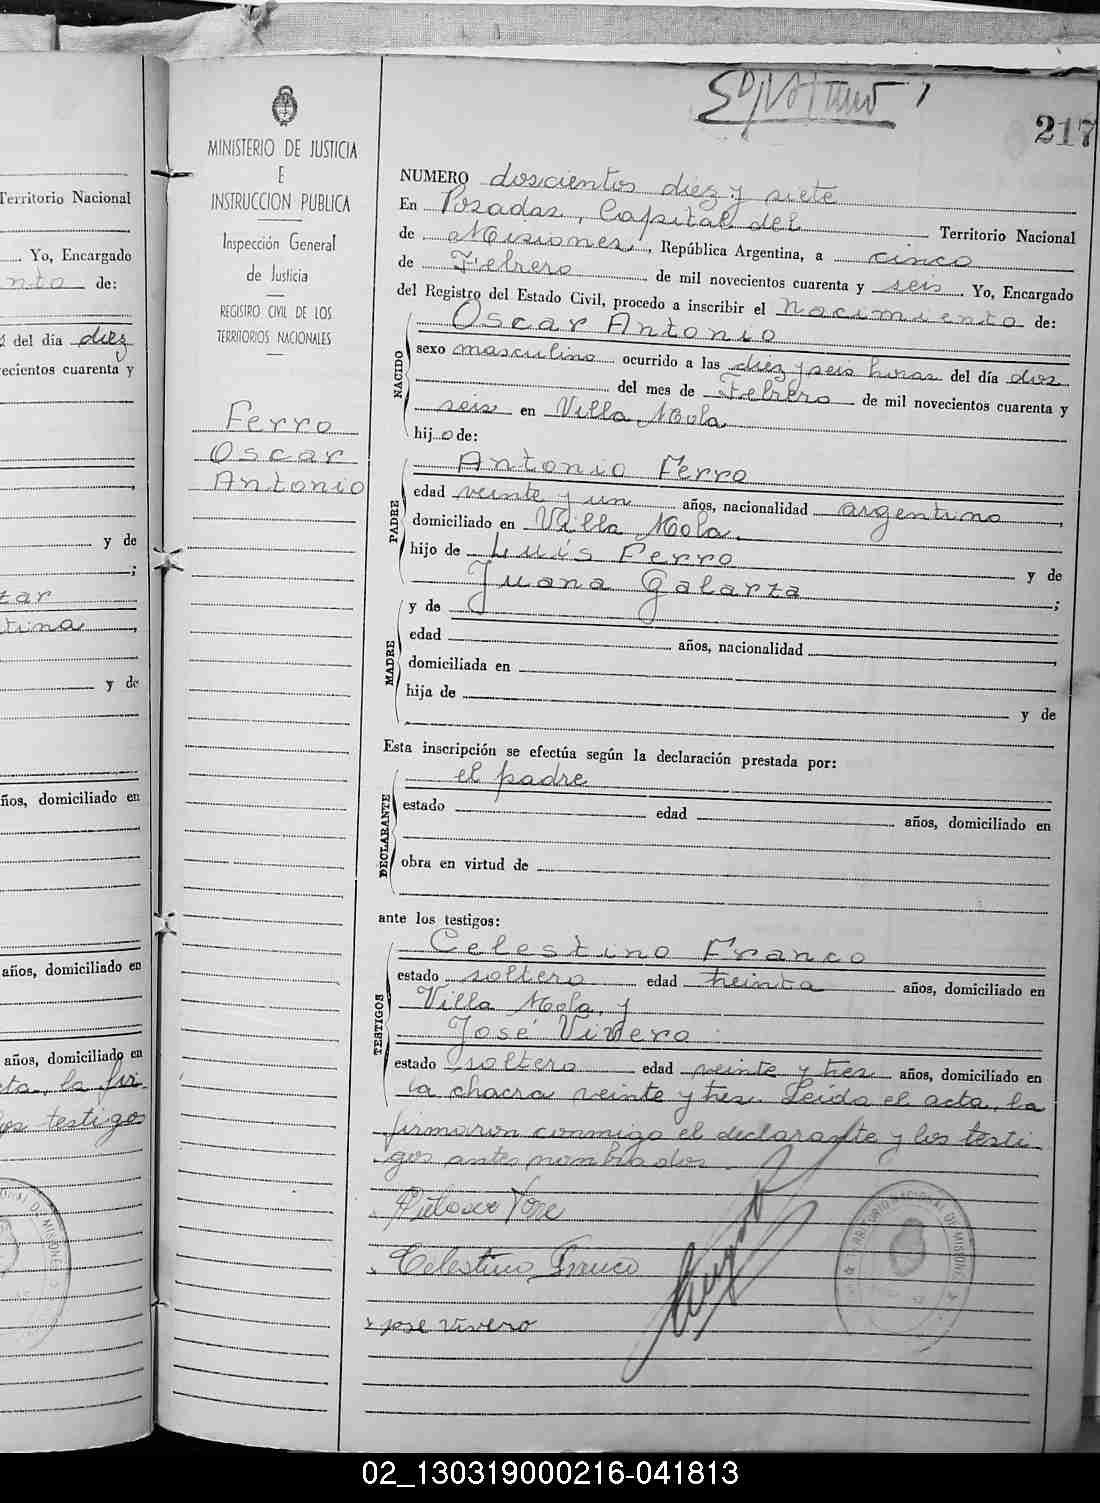 217
MINISTERIO DE JUSTICIA
E
INSTRUCCION PUBLICA
Inspección General
de Justicia
REGISTRO CIVIL DE LOS
TERRITORIOS NACIONALES
Ferro
Oscar
Antonio
NUMERO doscientos diez y siete
En Posadas, Capital del Territorio Nacional
de Misiones, República Argentina, a cinco
de Febrero de mil novecientos cuarenta y seis. Yo, Encargado
del Registro del Estado Civil, procedo a inscribir el Nacimiento de:
NACIDO
Oscar Antonio
sexo masculino ocurrido a las diez y seis horas del día dos
del mes de Febrero de mil novecientos cuarenta y
seis en Villa Mola
hijo de:
PADRE
Antonio Ferro
edad veinte y un años, nacionalidad argentino,
domiciliado en Villa Mola,
hijo de Luis Ferro y de
Juana Galarza;
MADRE
y de
edad años, nacionalidad,
domiciliada en
hija de
y de
Esta inscripción se efectúa según la declaración prestada por:
DECLARANTE
el padre
estado edad años, domiciliado en
obra en virtud de
ante los testigos:
TESTIGOS
Celestino Franco
estado soltero edad treinta años, domiciliado en
Villa Mola, y
José Vivero
estado soltero edad veinte y tres años, domiciliado en
la chacra veinte y tres. Leída el acta, la
firmaron conmigo el declarante y los testi-
gos antes nombrados.
Celestino Franco
jose vivero
TERRITORIO NACIONAL DE MISIONES
Territorio Nacional
Yo, Encargado
nto de:
del día diez
ecientos cuarenta y
y de
;
zar
tina,
y de
ños, domiciliado en
años, domiciliado en
años, domiciliado en
cta, la fir-
los testigos
NAL DE MISIONES
02_130319000216-041813